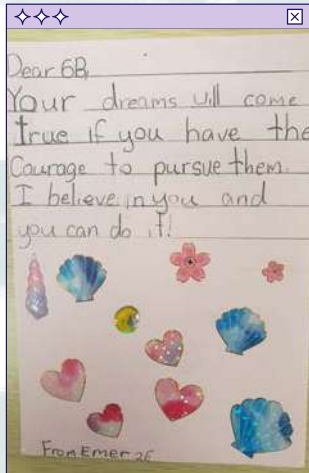 Dear 6B,
Your dreams will come
true if you have the
Courage to pursue them.
I believe in you and
you can do it!
From Emer 2E